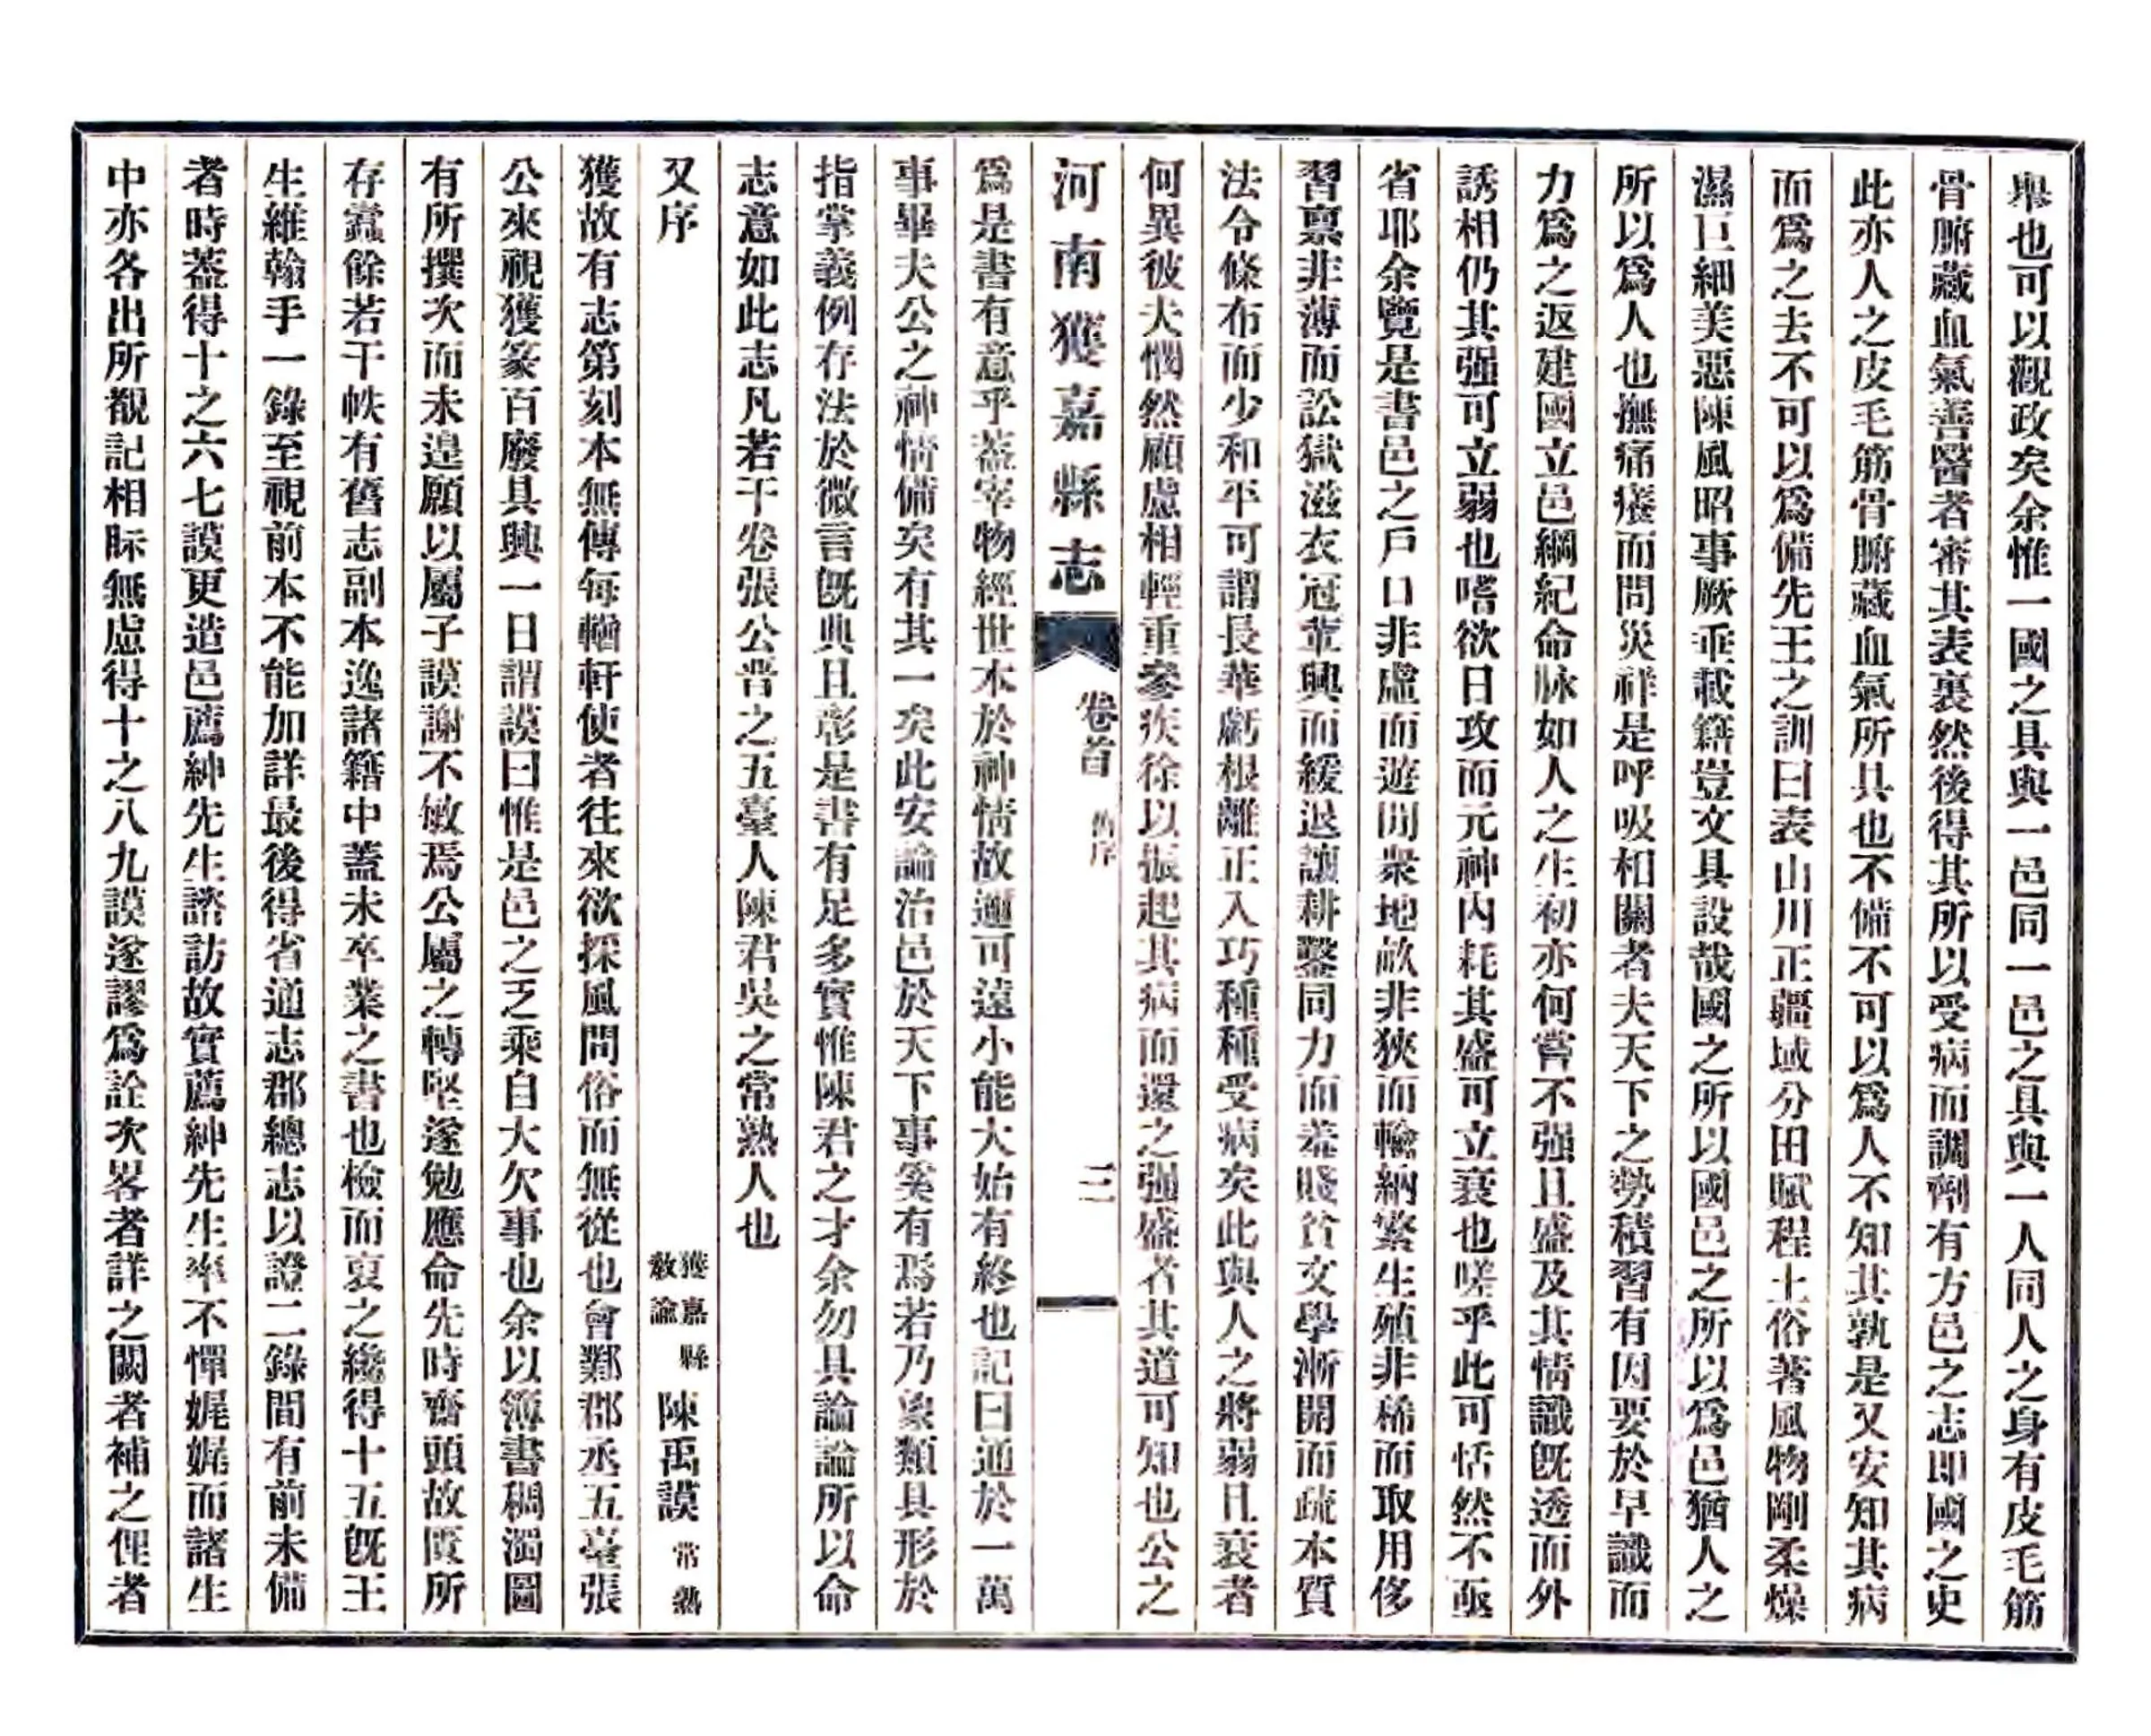 舉也可以觀政矣余惟一國之具與一邑同一邑之具與一人同人之身有皮毛筋
骨腑藏血氣善醫者審其表裏然後得其所以受病而調劑有方邑之志即國之史
此亦人之皮毛筋骨腑藏血氣所具也不備不可以爲人不知其孰是又安知其病
而爲之去不可以爲備先王之訓曰表山川正疆域分田賦程土俗著風物剛柔燥
濕巨細美惡陳風昭事厥垂載籍豈文具設哉國之所以國邑之所以爲邑猶人之
所以爲人也撫痛癢而問災祥是呼吸相關者夫天下之勢積習有因要於早識而
力爲之返建國立邑綱紀命脉如人之生初亦何嘗不强且盛及其情識旣透而外
誘相仍其强可立弱也嗜欲日攻而元神內耗其盛可立衰也嗟乎此可恬然不亟
省耶余覽是書邑之戶口非虛而遊閒衆地畝非狹而輸納繁生殖非稀而取用侈
習稟非薄而訟獄滋衣冠萃興而緩退讓耕鑿同力而羞賤貧文學漸開而疏本質
法令條布而少和平可謂長華虧根離正入巧種種受病矣此與人之將弱且衰者
何異彼夫憪然顧慮相輕重參疾徐以振起其病而還之强盛者其道可知也公之
河南獲嘉縣志
卷首
舊序
三
爲是書有意乎蓋宰物經世本於神情故邇可遠小能大始有終也記曰通於一萬
事畢夫公之神情備矣有其一矣此安論治邑於天下事奚有焉若乃象類具形於
指掌義例存法於微言旣典且彰是書有足多實惟陳君之才余勿具論論所以命
志意如此志凡若干卷張公晋之五臺人陳君吳之常熟人也
又序
獲嘉縣
敎諭
陳禹謨
常熟
獲故有志第刻本無傳每輶軒使者往來欲採風問俗而無從也會鄴郡丞五臺張
公來視獲篆百廢具興一日謂謨曰惟是邑之乏乘自大欠事也余以簿書稠濁圖
有所撰次而未遑願以屬子謨謝不敏焉公屬之轉堅遂勉應命先時齋頭故匱所
存蠹餘若干帙有舊志副本逸諸籍中蓋未卒業之書也檢而裒之纔得十五旣王
生維翰手一錄至視前本不能加詳最後得省通志郡總志以證二錄間有前未備
者時蓋得十之六七謨更造邑薦紳先生諮訪故實薦紳先生率不憚娓娓而諸生
中亦各出所覩記相眎無虛得十之八九謨遂謬爲詮次畧者詳之闕者補之俚者